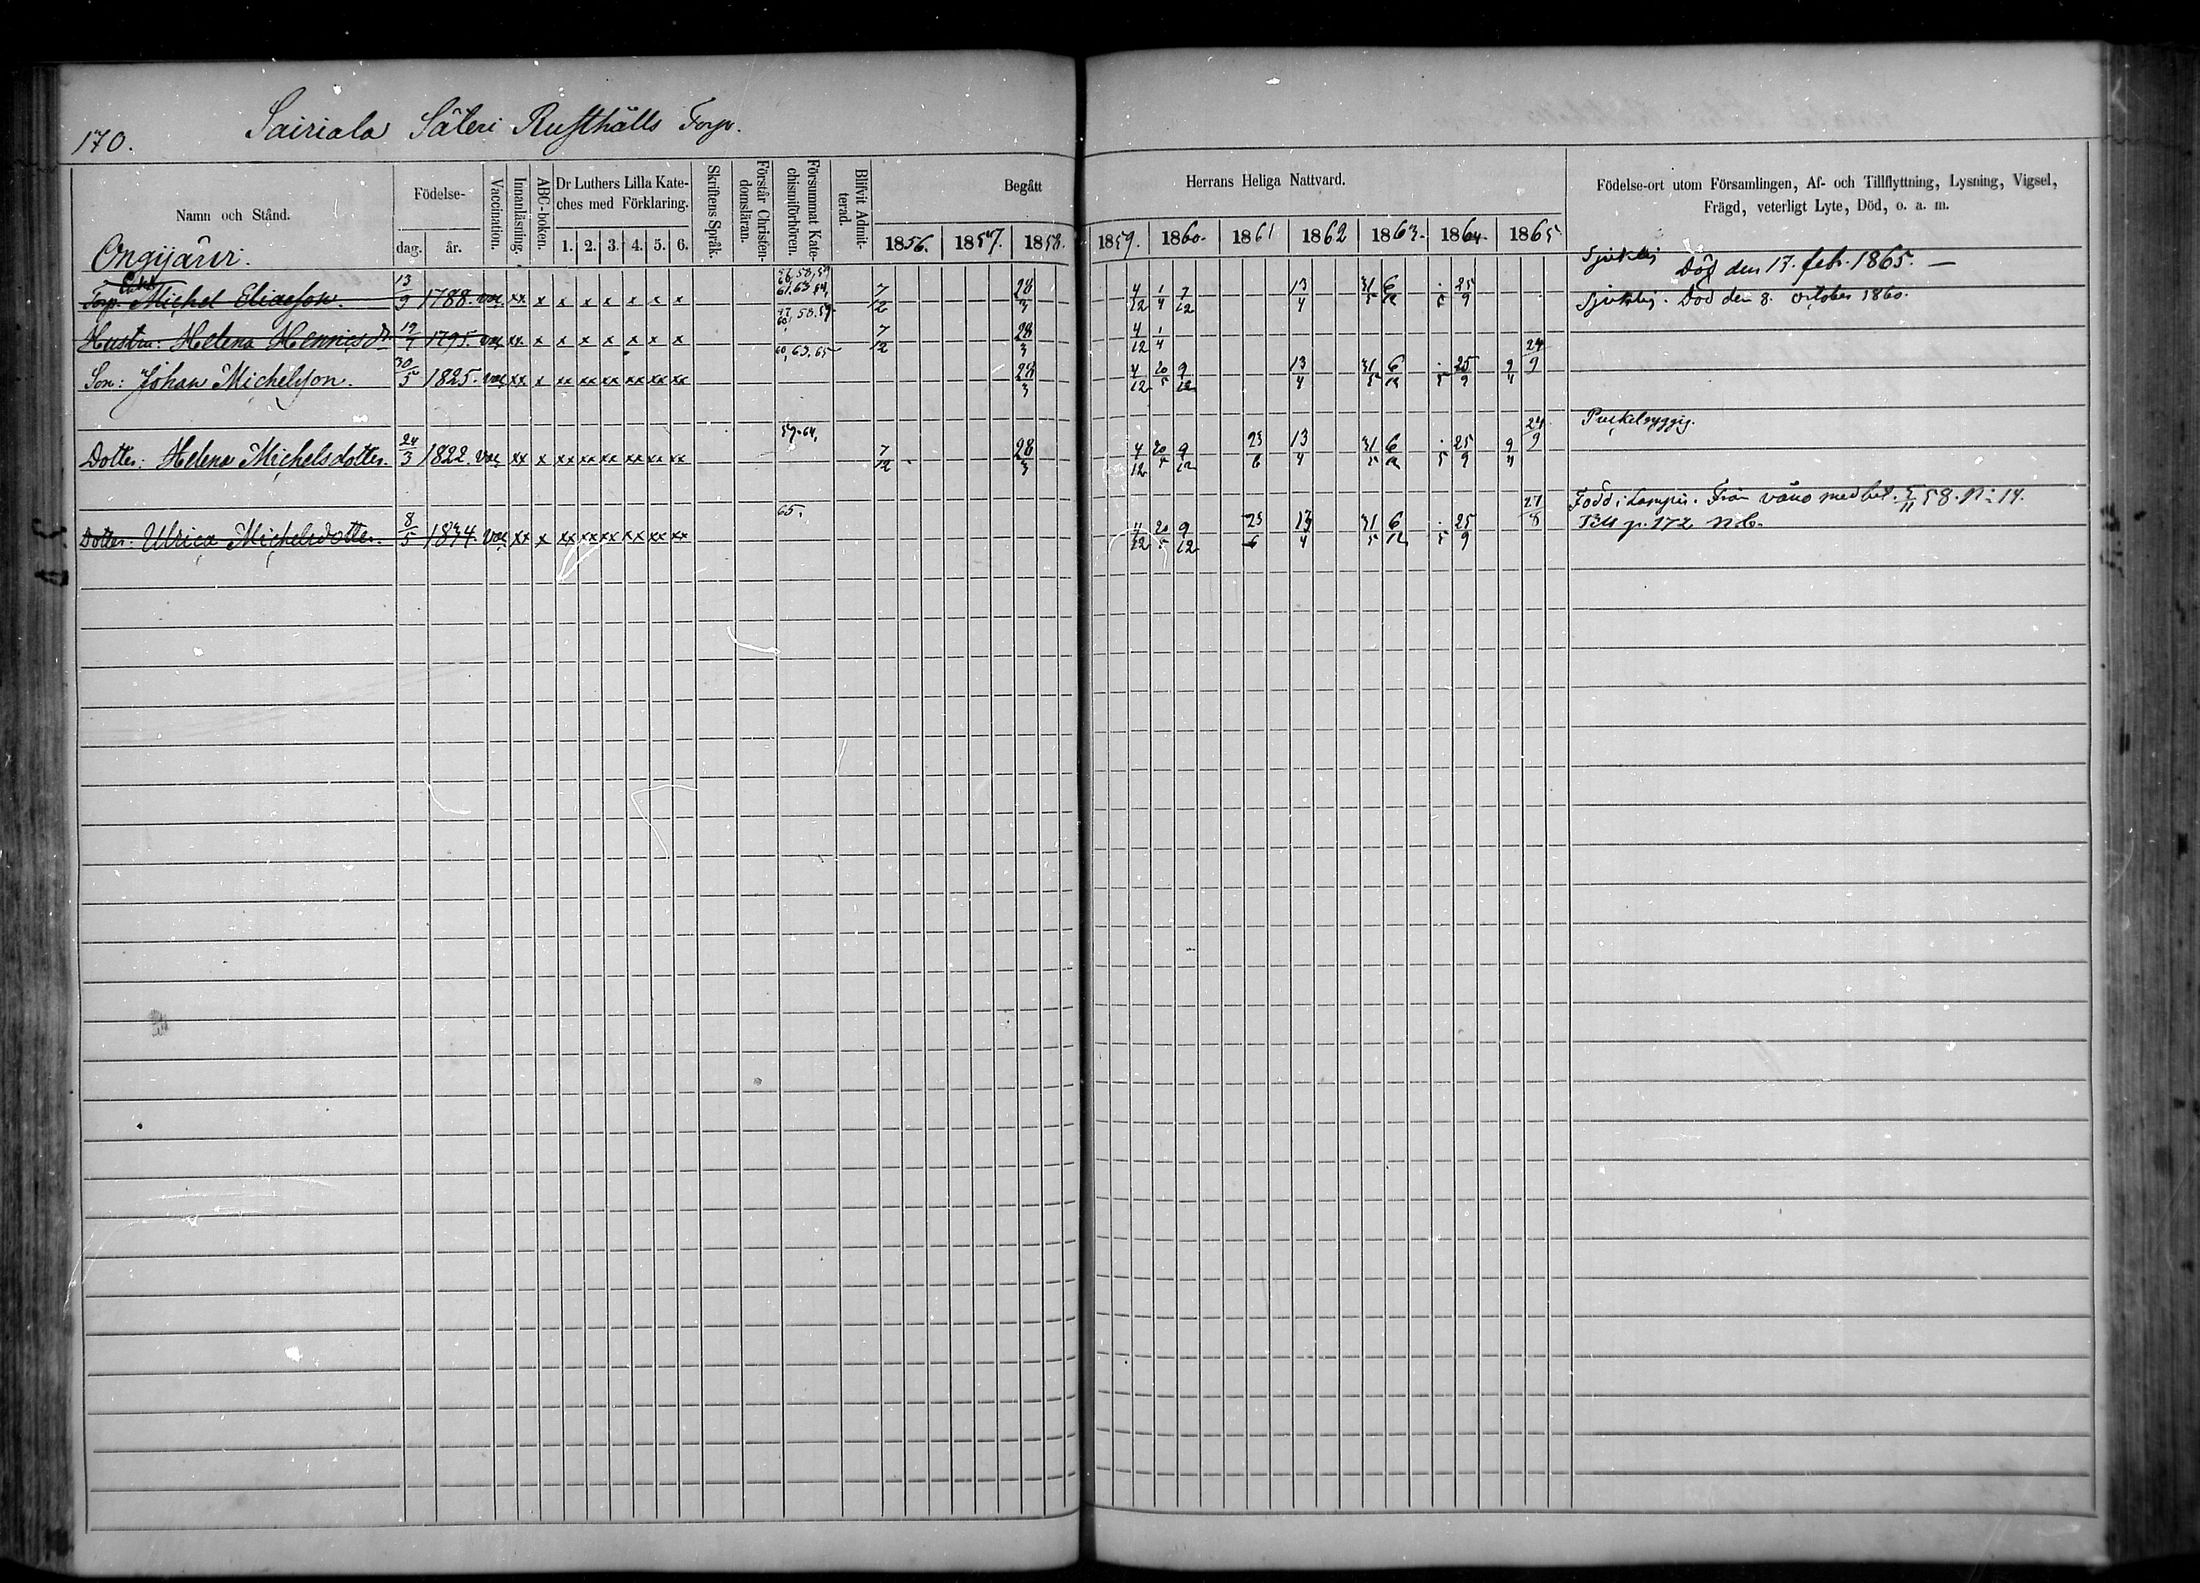 170.
Sairiala Säteri Rusthålls Torp.
Namn och Stånd.
Födelse-
dag. år.
Vaccination.
Innanläsning.
ABC-boken.
Dr Luthers Lilla Kate-
ches med Förklaring.
1. 2. 3. 4. 5. 6.
Skriftens Språk.
Förstår Christen-
domsläran.
Försummat Kate-
chismiförhören.
Blifvit Admit-
terad.
Begått Herrans Heliga Nattvard.
1856. 1857. 1858. 1859. 1860. 1861 1862 1863. 1864. 1865
Födelse-ort utom Församlingen, Af- och Tillflyttning, Lysning, Vigsel,
Frägd, veterligt Lyte, Död, o. a. m.
Ongijärvi.
Torp. Michel Eliasson. 13/9 1788. vac xx x x x x x x x 7/12 28/3 4/12 1/4 7/12 13/4 31/5 6/12 25/9 Sjuklig Död den 17. feb. 1865. —
Hustru: Helena Henricsdr 1795. vac xx x x x x x x x 57. 58. 59 60 7/12 28/3 4/12 1/4 Sjuklig. Död den 8. october 1860.
Son: Johan Michelsson. 30/5 1825. vac xx x xx xx xx xx xx xx 60, 63. 65 28/3 4/12 20/5 9/12 13/4 31/5 6/12 5 25/9 9/4 24/9
Dotter: Helena Michelsdotter. 24/3 1822. vac xx x xx xx xx xx xx xx 59. 64. 7/12 28/3 4/12 20/5 9/12 25/6 13/4 31/5 6/12 5 25/9 9/4 24/9 Puckelryggig.
Dotter: Ulrica Michelsdotter. 8/5 1834. vac xx x xx xx xx xx xx xx 65. 4/12 20/5 9/12 25/6 13/4 31/5 6/12 5 25/9 27/8 Född i Lampis. Från Våno med bet. 58. N: 14.
Till p. 172 n.b.